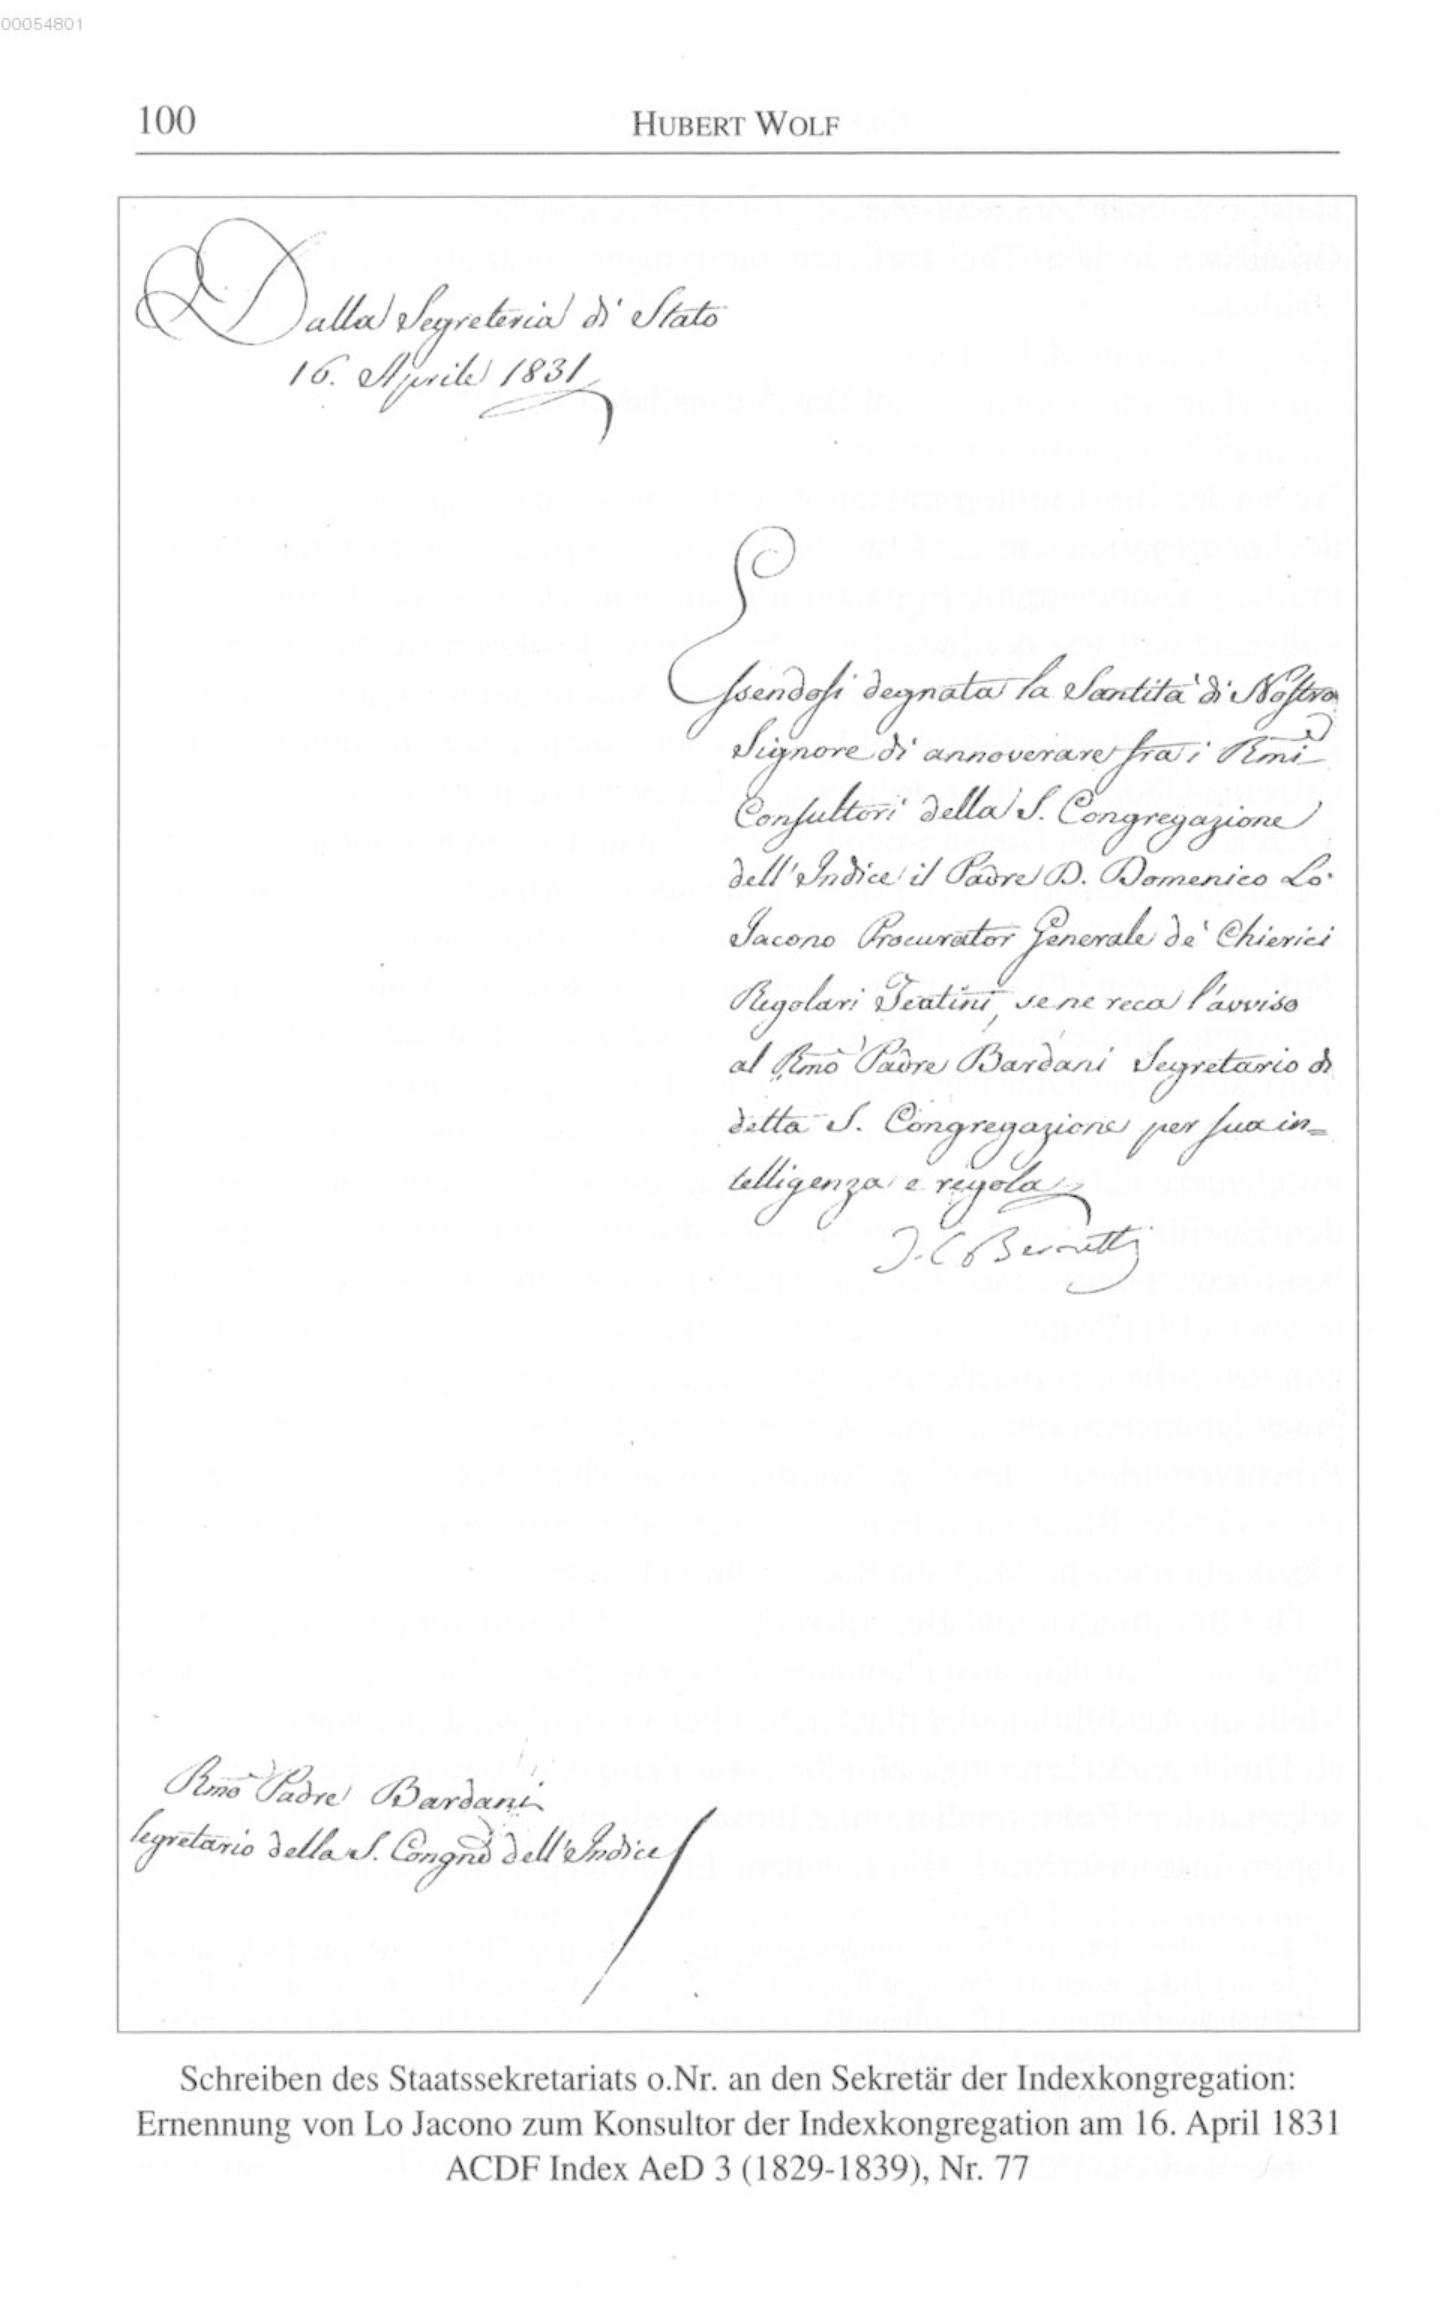 00054801
100 HUBERT WOLF
Dalla Segreteria di Stato
16. Aprile 1831
Essendosi degnata la Santità di Nostro
Signore di annoverare fra i Rmi
Consultori della S. Congregazione
dell'Indice il Padre D. Domenico Lo
Jacono Procurator Generale de' Chierici
Regolari Teatini, se ne reca l'avviso
al Rmo Padre Bardani Segretario di
detta S. Congregazione per sua in=
telligenza e regola
T. C. Bernetti
Rmo Padre Bardani
Segretario della S. Congne dell'Indice
Schreiben des Staatssekretariats o.Nr. an den Sekretär der Indexkongregation:
Ernennung von Lo Jacono zum Konsultor der Indexkongregation am 16. April 1831
ACDF Index AeD 3 (1829-1839), Nr. 77